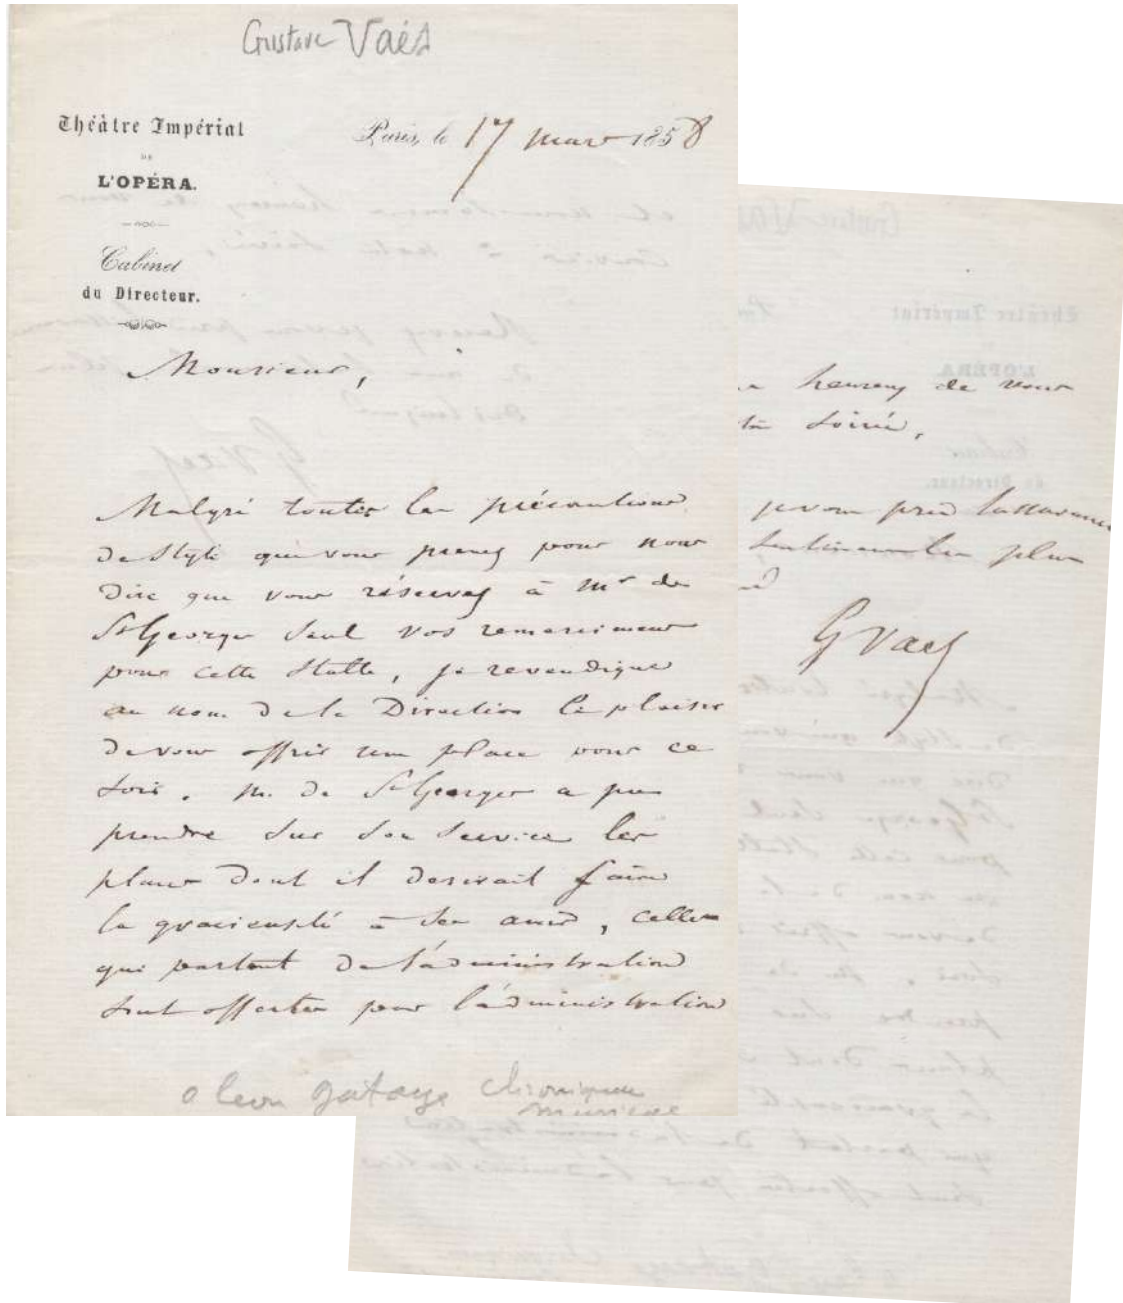 Gustave Vaës
Théâtre Impérial
DE
L'OPÉRA.
Cabinet
du Directeur.
Paris, le 17 mars 1858
Monsieur,
Malgré toutes les précautions
de style que vous prenez pour nous
dire que vous réservez à Mr de
St Georges seul vos remerciments
pour cette stalle, je revendique
au nom de la Direction le plaisir
de vous offrir une place pour ce
soir. M. de St Georges a pu
prendre sur son service les
places dont il desirait faire
la gracieuseté à ses amis, celles
qui partent de l'administration
sont offertes par l'administration
a leon gatayes chronique
musicale
heureuse de vous
soirée.
je vous prie l'assurance
sentiments les plus
G Vaez